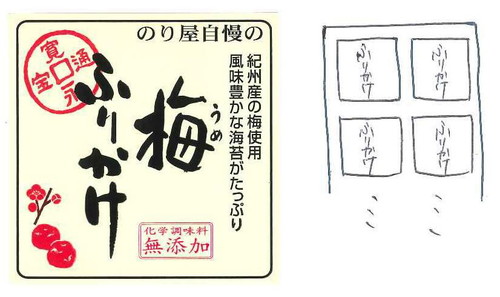 のり屋自慢の
紀州産の梅使用
風味豊かな海苔がたっぷり
梅
うめ
ふりかけ
寛永通宝
化学調味料
無添加
ふりかけ
ふりかけ
ふりかけ
ふりかけ